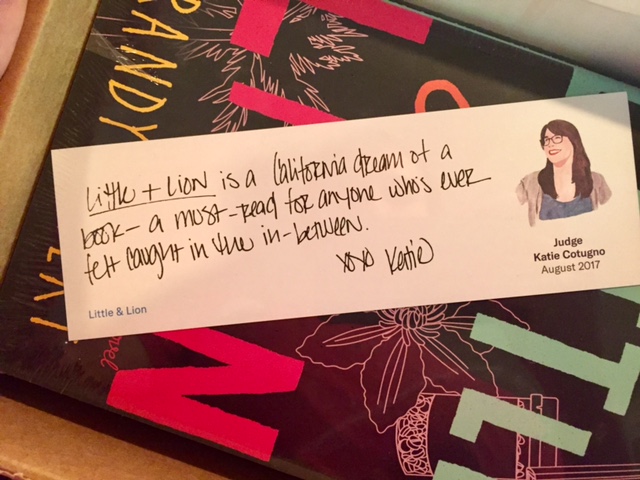 Little + Lion is a California dream of a
book – a must-read for anyone who's ever
felt caught in the in-between.
xoxo Katie
Judge
Katie Cotugno
August 2017
Little & Lion
RANDY
novel